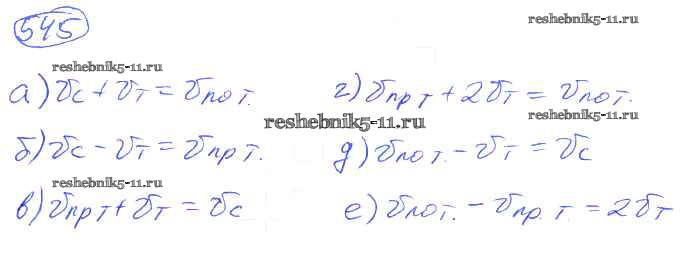 545
reshebnik5-11.ru
reshebnik5-11.ru
а) Vс + Vт = Vпо т.
г) Vпр т + 2Vт = Vпо т.
reshebnik5-11.ru
reshebnik5-11.ru
б) Vс - Vт = Vпр т.
д) Vпо т. - Vт = Vс
reshebnik5-11.ru
в) Vпр т + Vт = Vс
е) Vпо т. - Vпр. т. = 2Vт